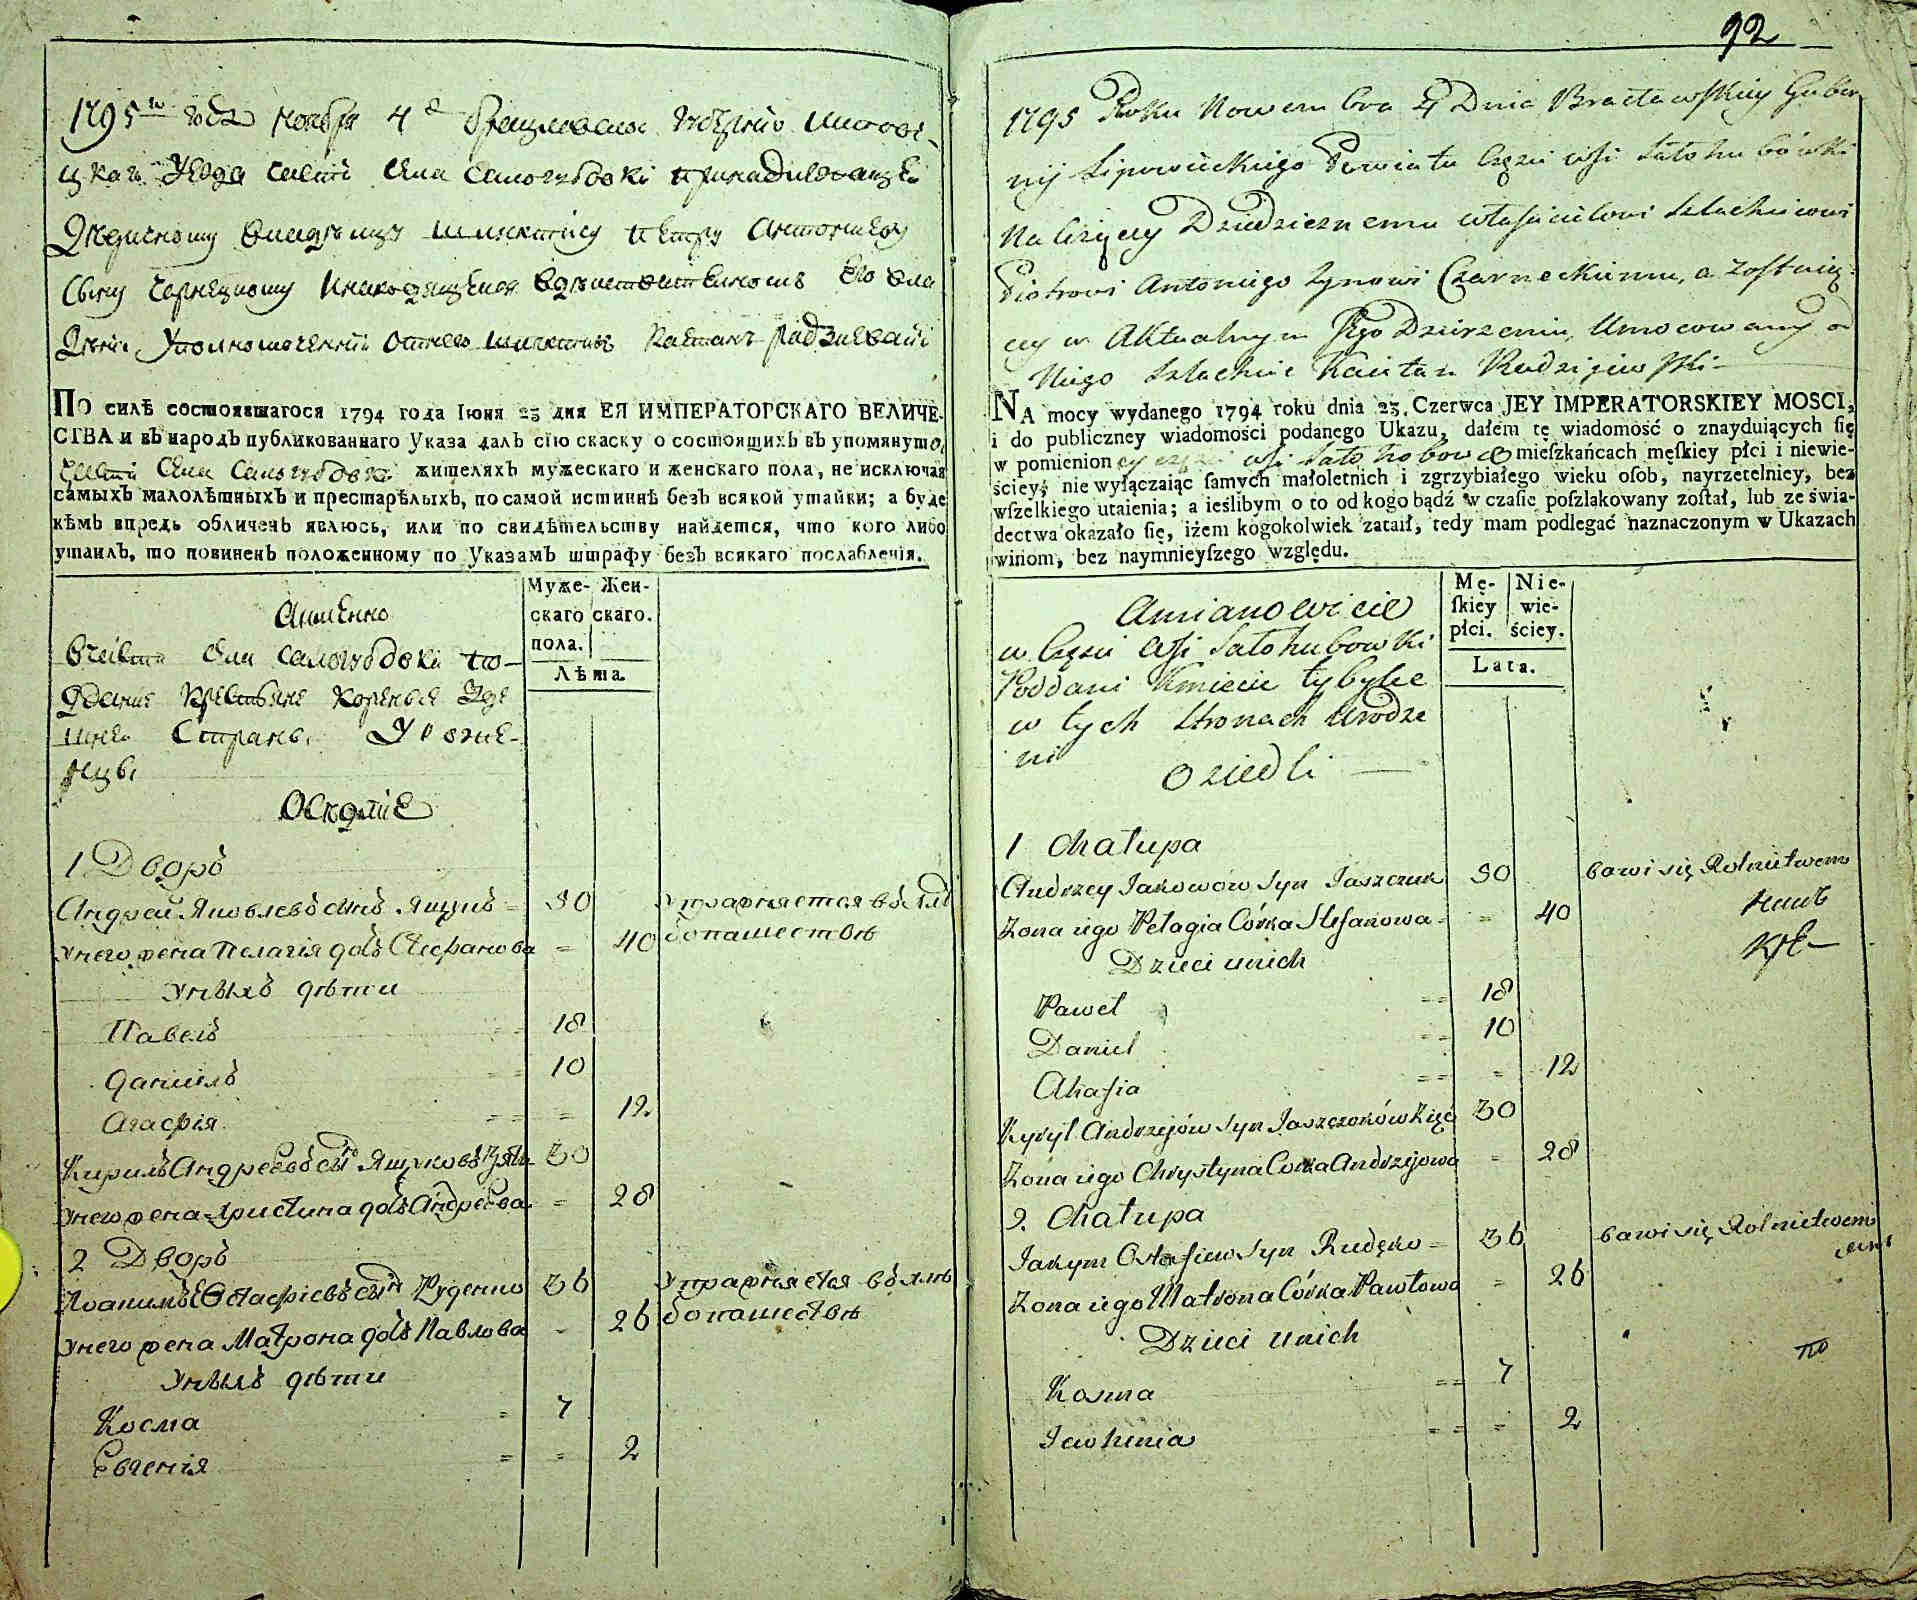 1795го года Ноября 4 д Брацлавской губерніи Липове-
цкаго Уезда части села Салогубовки принадлежащей
Дедичному владельцу шляхтичу Петру Антониеву
сыну Чернецкому и находящейся в действительномъ его вла
дении Уполномоченный отнего шляхтичъ Каетанъ Радзиевский
По силѣ состоявшагося 1794 года Іюня 23 дня ЕЯ ИМПЕРАТОРСКАГО ВЕЛИЧЕ-
СТВА и въ народъ публикованнаго Указа далъ сію скаску о состоящихъ въ упомянутой
части села Салогубовки жителяхъ мужескаго и женскаго пола, не исключая
самыхъ малолѣтныхъ и престарѣлыхъ, по самой истиннѣ безъ всякой утайки; а буде
кѣмъ впредь обличенъ явлюсь, или по свидѣтельству найдется, что кого либо
утаилъ, то повиненъ положенному по Указамъ штрафу безъ всякаго послабленія.
Муже- Жен-
скаго скаго.
пола.
Лѣта
Аименно
Вчасти села Салогубовки по-
даные крестьяне коренные зде
шней страны, Уроже-
нцы
Оседлие
1 Дворъ
Андрей Яковлевъ сынъ Ящукъ = 50 Упражняется въ хлѣ
Унего жена Пелагія дочь Стефанова = 40 бопашествѣ
Унихъ дѣти
Павелъ 18
Даніилъ 10
Агафія = = = 12
Кирилъ Андреевъ сынъ Ящуковъ Зять 30
Унего жена Христина дочь Андреева = 28
2 Дворъ
Іоакимъ Остафіевъ сынъ Руденко 36 Упражняется въ хлѣ
Унего жена Матрона дочь Павлова = 26 бопашествѣ
Унихъ дѣти
Косма = 7
Евгенія = = 2
92
1795 Roku Nowembra 4 Dnia Bracławskiey Guber
nij Lipowieckiego Powiatu Części wsi Sałohubówki
Należący Dziedzicznemu właścicielowi Szlachcicowi
Piotrowi Antoniego Synowi Czarneckiemu, a Zostaią-
cey w Aktualnym Jego Dzierżeniu, Umocowany od
Niego Szlachcic Kaietan Radziejewski -
NA mocy wydanego 1794 roku dnia 23. Czerwca JEY IMPERATORSKIEY MOSCI,
i do publiczney wiadomości podanego Ukazu, dałem tę wiadomość o znayduiących ſię
w pomienioney części wsi Sałohubowce mieſzkańcach męſkiey płci i niewie-
ściey, nie wyłączaiąc ſamych małoletnich i zgrzybiałego wieku oſob, nayrzetelniey, bez
wſzelkiego utaienia; a ieślibym o to od kogo bądź w czaſie poſzlakowany zoſtał, lub ze świa-
dectwa okazało ſię, iżem kogokolwiek zataił, tedy mam podlegać naznaczonym w Ukazach
winom, bez naymnieyſzego względu.
Mę- Nie-
ſkiey wie-
płci. ściey.
Lata.
Amianowicie
w Części wsi Sałohubowki
Poddani Kmiecie tybylce
w tych stronach Urodze
ni
Osiedli —
1 Chałupa
Andrzey Jakowow Syn Jaszczuk 50 bawi się Rolnictwem
Żona iego Pelagia Córka Stefanowa = = 40
Dzieci unich
Paweł = = 18
Daniel = = 10
Ahafia = = = 12
Kyryl Andrzejów Syn Jaszczuków Zięć 30
Żona iego Chrystyna Corka Andrzejowa = 28
2. Chałupa
Jakym Ostafiew Syn Rudęko = 36 bawi się Rolnictwem
Żona iego Matrona Córka Pawłowa = 26
Dzieci unich
Kosma = = 7
Jewhenia = = = 2